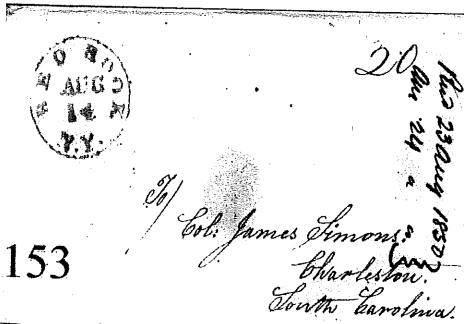 RED ROCK
AUG
14
N.Y.
20
Recd 23 Aug 1850
Ans 24 " "
To/
Col: James Simons,
Charleston.
South Carolina.
153